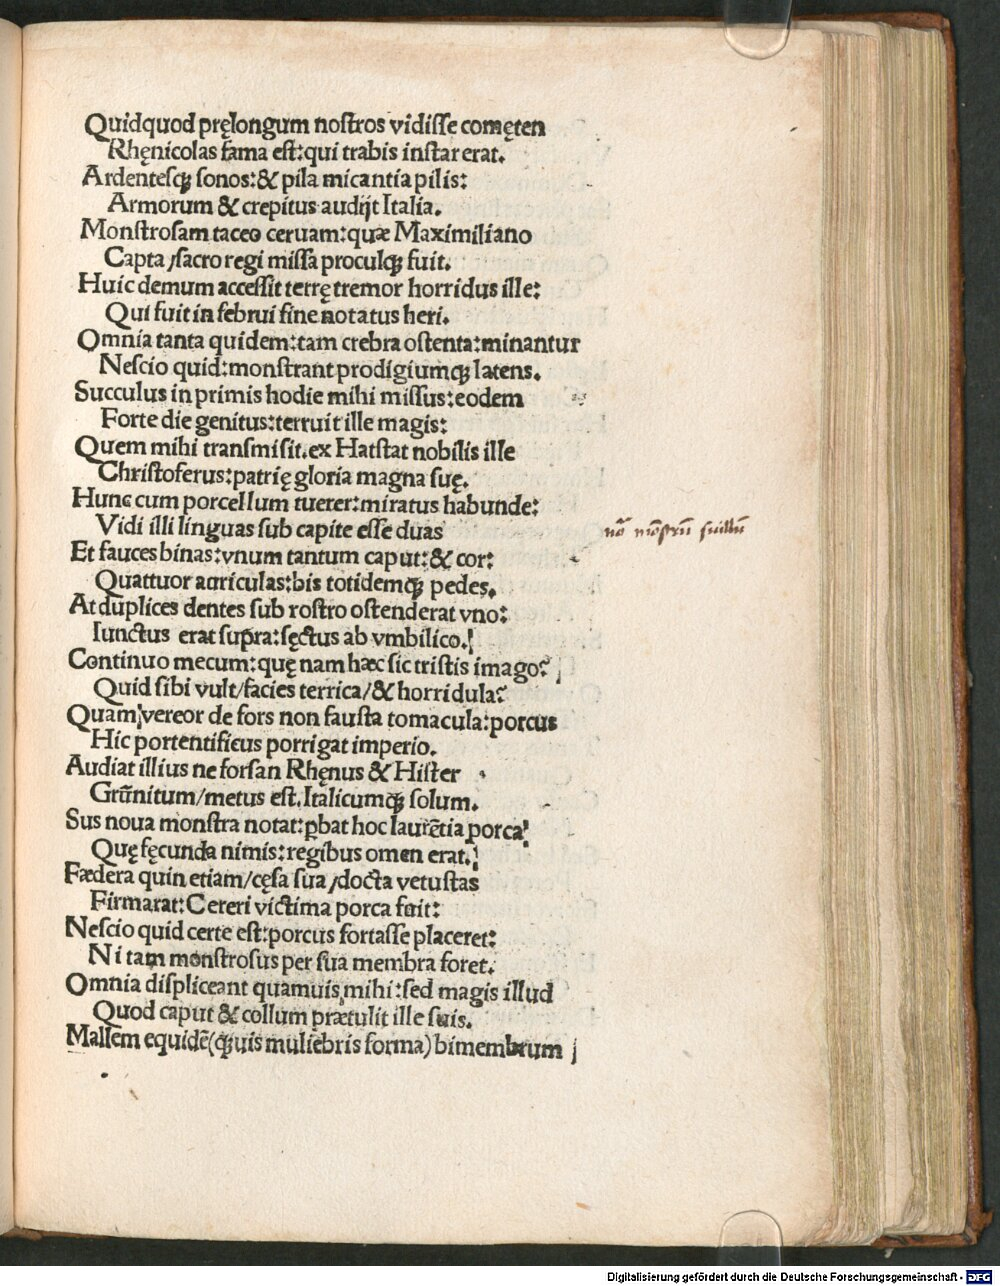 Quidquod pręlongum nostros vidisse comęten
Rhęnicolas fama est: qui trabis instar erat.
Ardentesqꝫ sonos: & pila micantia pilis:
Armorum & crepitus audijt Italia.
Monstrosam taceo ceruam: quæ Maximiliano
Capta / sacro regi missa proculqꝫ fuit.
Huic demum accessit terrę tremor horridus ille:
Qui fuit in februi fine notatus heri.
Omnia tanta quidem: tam crebra ostenta: minantur
Nescio quid: monstrant prodigiumqꝫ latens.
Succulus in primis hodie mihi missus: eodem
Forte die genitus: terruit ille magis:
Quem mihi transmisit. ex Hatstat nobilis ille
Christoferus: patrię gloria magna suę.
Hunc cum porcellum tuerer: miratus habunde:
Vidi illi linguas sub capite esse duas
nō mōstrū suillū
Et fauces binas: vnum tantum caput: & cor:
Quattuor auriculas: bis totidemqꝫ pedes.
At duplices dentes sub rostro ostenderat vno:
Iunctus erat supra: sęctus ab vmbilico.
Continuo mecum: quę nam hæc sic tristis imago?
Quid sibi vult / facies terrica / & horridula?
Quam vereor de fors non fausta tomacula: porcus
Hic portentificus porrigat imperio.
Audiat illius ne forsan Rhęnus & Hister
Grūnitum / metus est. Italicumqꝫ solum.
Sus noua monstra notat: ꝓbat hoc laurētia porca
Quę fęcunda nimis: regibus omen erat.
Fædera quin etiam / cęsa sua / docta vetustas
Firmarat: Cereri victima porca fuit:
Nescio quid certe est: porcus fortasse placeret:
Ni tam monstrosus per sua membra foret.
Omnia displiceant quamuis mihi: sed magis illud
Quod caput & collum prætulit ille suis.
Mallem equidē (qꝫuis muliebris forma) bimembrum
Digitalisierung gefördert durch die Deutsche Forschungsgemeinschaft - DFG